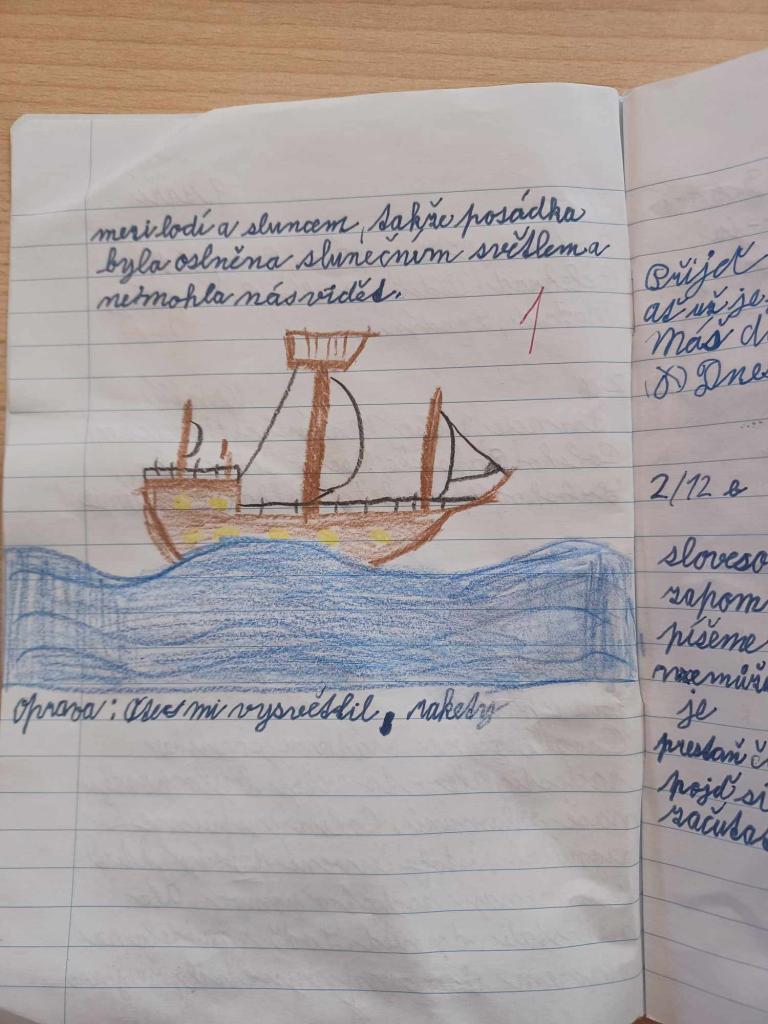 mezi lodí a sluncem, takže posádka
byla oslněna slunečním světlem a
nemohla nás vidět.
1
oprava: Otec mi vysvětlil, rakety
Přijď
ať už je
Máš
Dnes
2/12
sloveso
píšeme
je
přestaň
pojď si